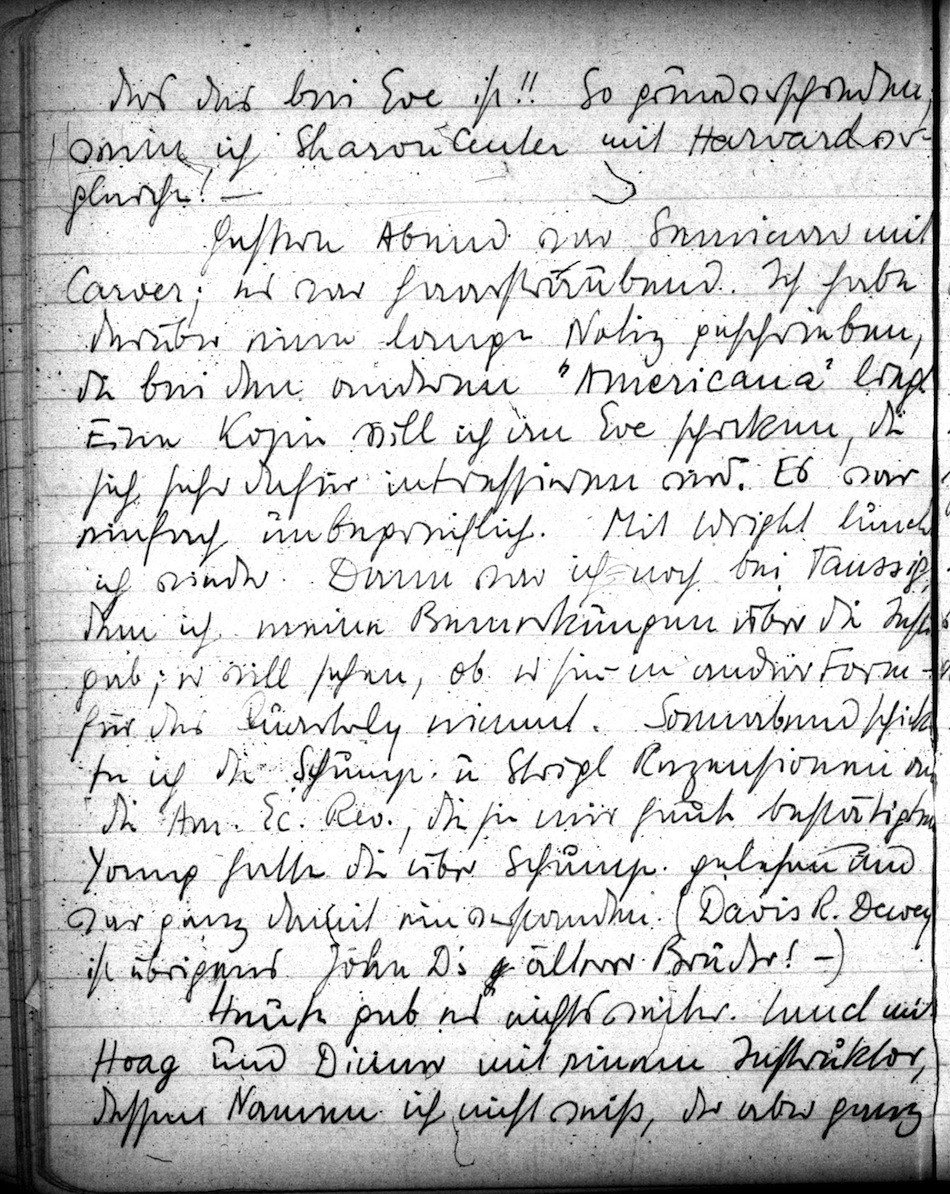 das das bei Eve ist!! So grundverschieden,
wenn ich Sharon Center mit Harvard ver-
gleiche! —
Gestern Abend war Seminar mit
Carver; es war haarsträubend. Ich habe
darüber eine lange Notiz geschrieben,
die bei den anderen "Americana" liegt
Eine Kopie will ich an Eve schicken, die
sich sehr dafür interessieren wird. Es war
einfach unbegreiflich. Mit Wright lunch
ich wieder. Dann war ich noch bei Taussig,
dem ich meine Bemerkungen über die
gab; er will sehen, ob er sie in andrer Form
für das Quarterly nimmt. Sonnabend schick
te ich die Schump. u Strigl Rezensionen an
die Am. Ec. Rev., die sie mir heute bestätigten
Young hatte die über Schump. gelesen und
war ganz damit einverstanden. (Davis R. Dewey
ist übrigens John D's älterer Bruder! —)
Heute gab es nichts weiter. Lunch mit
Hoag und Dinner mit einem Instruktor,
dessen Namen ich nicht weiß, der aber ganz